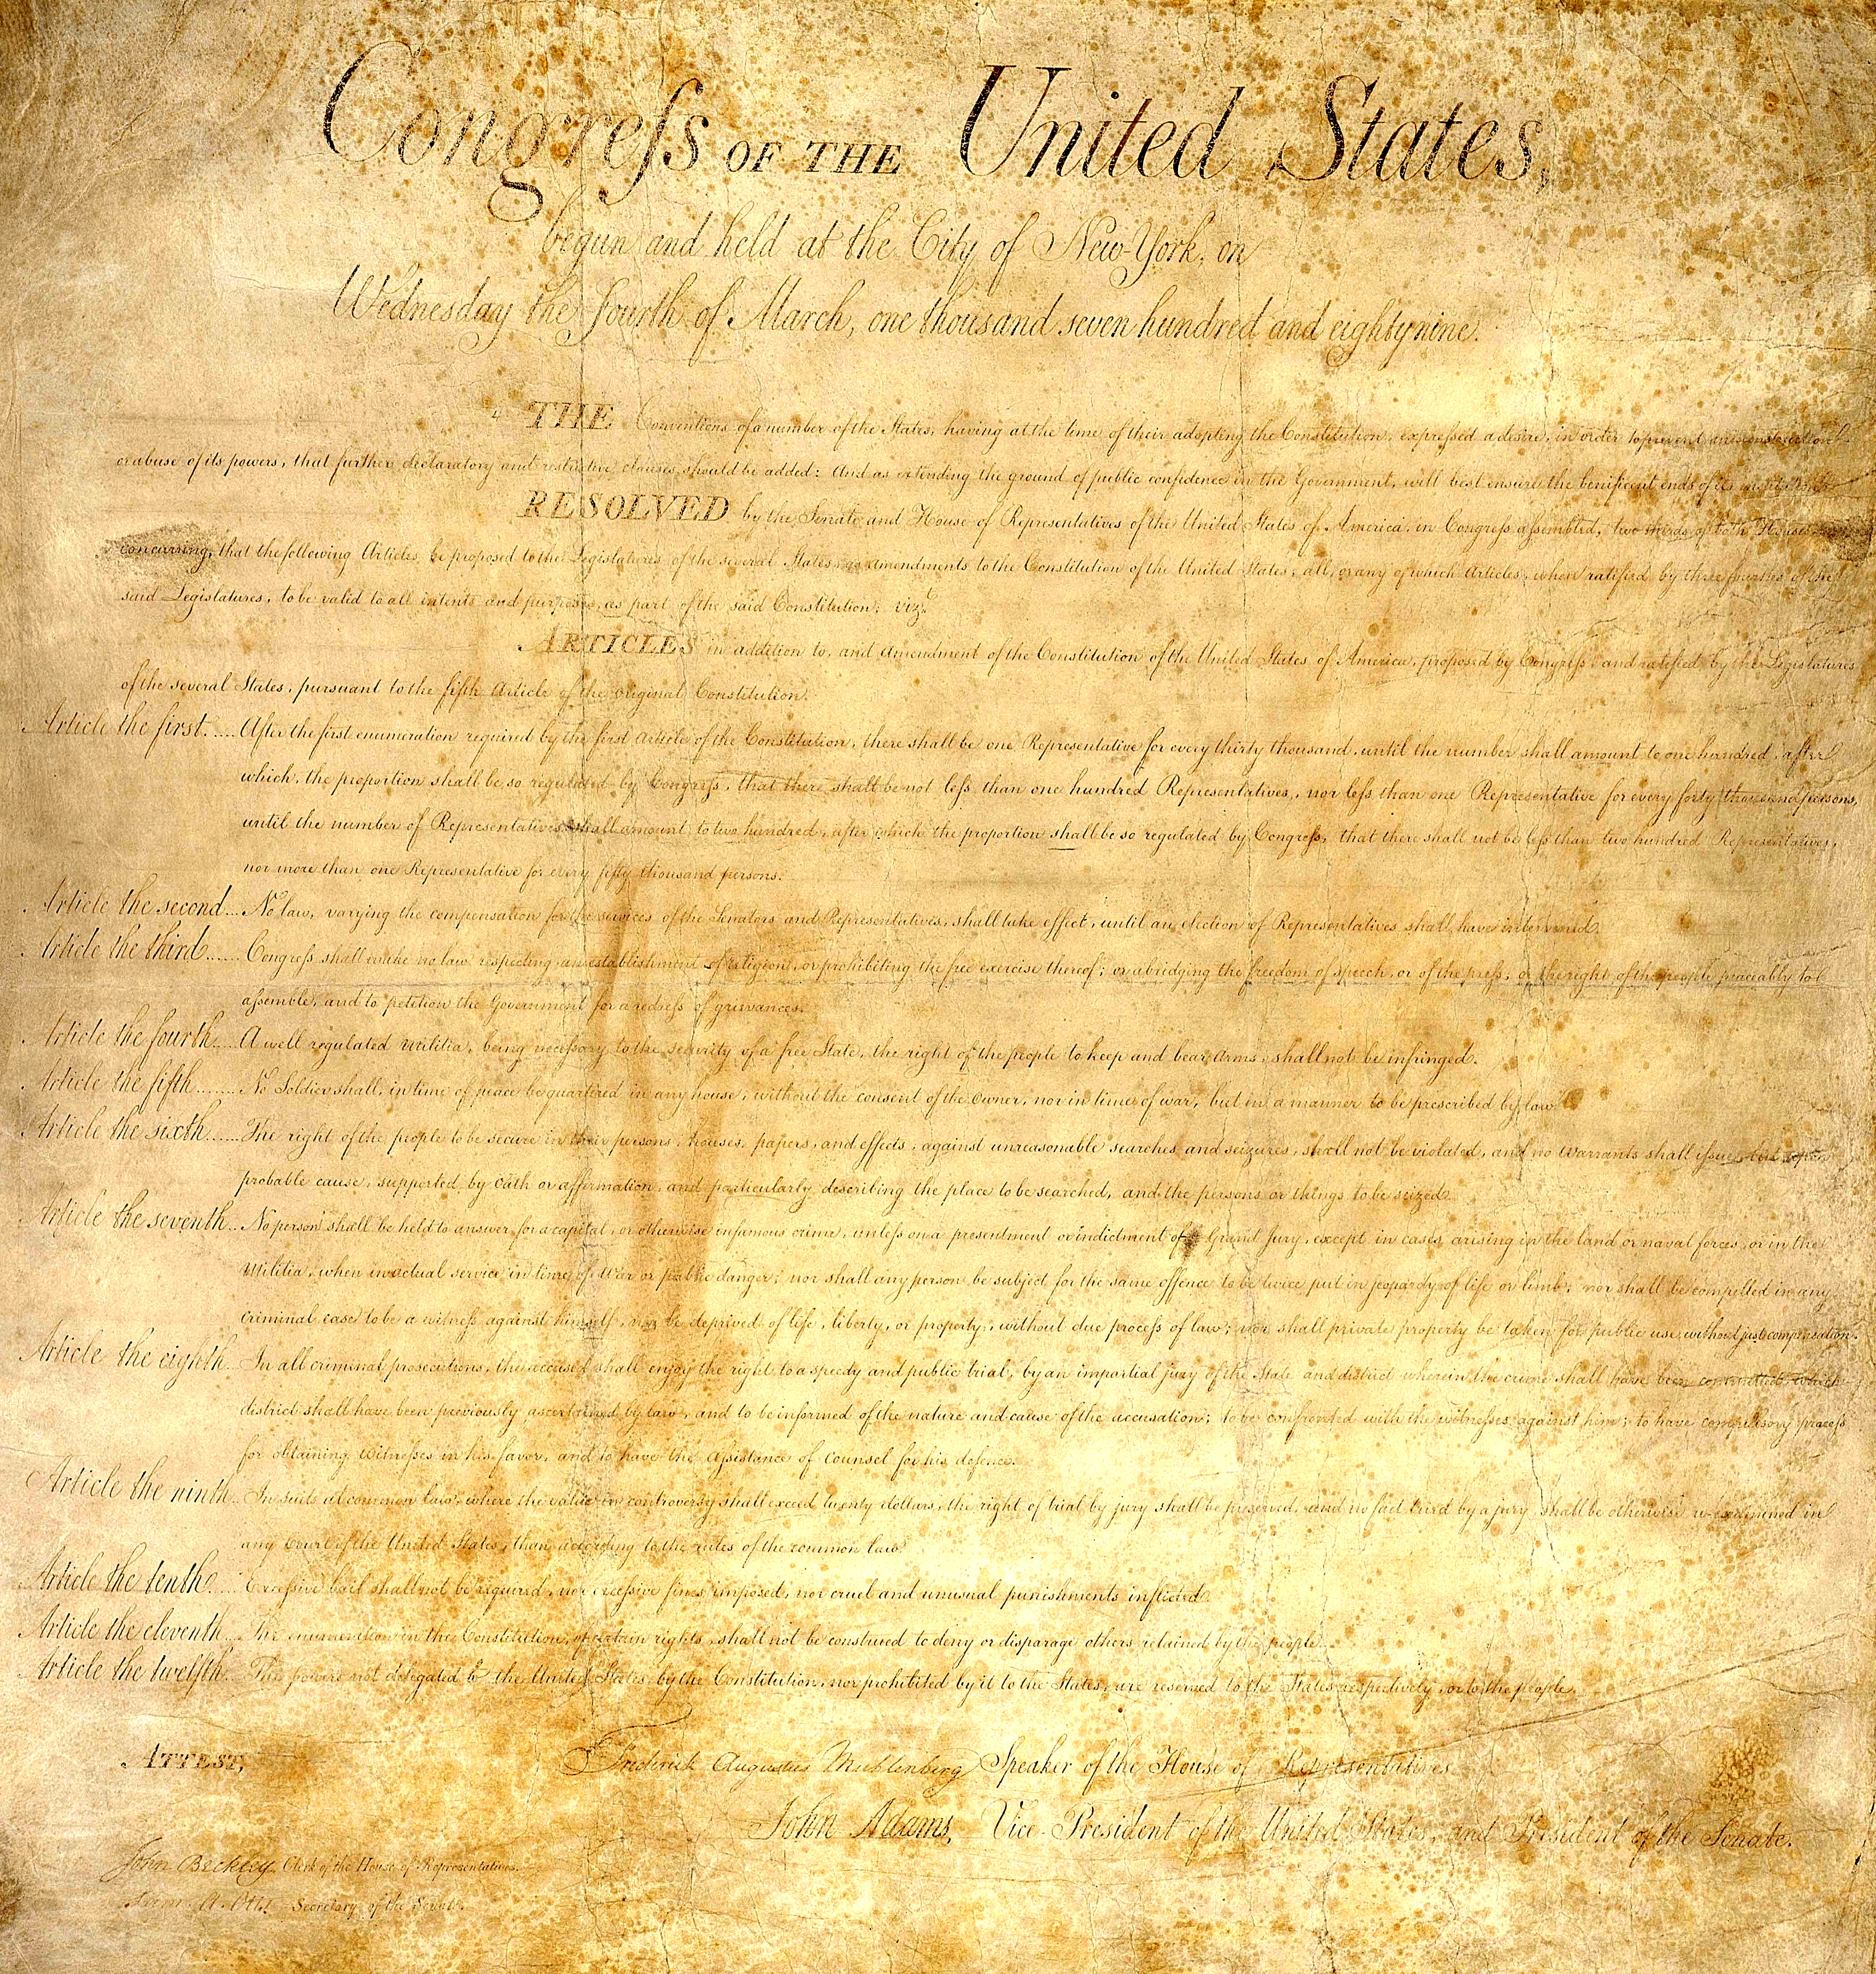 Congreſs OF THE United States,
begun and held at the City of New-York, on
Wednesday the Fourth of March, one thousand seven hundred and eighty nine.
THE Conventions of a number of the States, having at the time of their adopting the Constitution, expressed a desire, in order to prevent misconstruction
or abuse of its powers, that further declaratory and restrictive clauses should be added: And as extending the ground of public confidence in the Government, will best ensure the benificent ends of its
RESOLVED by the Senate and House of Representatives of the United States of America, in Congreſs aſsembled, two thirds of both Houses
concurring, that the following Articles be proposed to the Legislatures of the several States, as amendments to the Constitution of the United States, all, or any of which Articles, when ratified by three fourths of the
said Legislatures, to be valid to all intents and purposes, as part of the said Constitution; vizt
ARTICLES in addition to, and Amendment of the Constitution of the United States of America, proposed by Congreſs, and ratified by the Legislatures
of the several States, pursuant to the fifth Article of the original Constitution.
Article the first..... After the first enumeration required by the first Article of the Constitution, there shall be one Representative for every thirty thousand, until the number shall amount to one hundred, after
which, the proportion shall be so regulated by Congreſs, that there shall be not leſs than one hundred Representatives, nor leſs than one Representative for every forty thousand persons,
until the number of Representatives shall amount to two hundred, after which the proportion shall be so regulated by Congreſs, that there shall not be leſs than two hundred Representatives,
nor more than one Representative for every fifty thousand persons.
Article the second... No law, varying the compensation for the services of the Senators and Representatives, shall take effect, until an election of Representatives shall have intervened.
Article the third...... Congreſs shall make no law respecting an establishment of religion, or prohibiting the free exercise thereof; or abridging the freedom of speech, or of the preſs, or the right of the people peaceably to
aſsemble, and to petition the Government for a redreſs of grievances.
Article the fourth.... A well regulated Militia, being neceſsary to the security of a free State, the right of the people to keep and bear Arms, shall not be infringed.
Article the fifth........ No Soldier shall, in time of peace be quartered in any house, without the consent of the Owner, nor in time of war, but in a manner to be prescribed by law.
Article the sixth...... The right of the people to be secure in their persons, houses, papers, and effects, against unreasonable searches and seizures, shall not be violated, and no Warrants shall iſsue, but upon
probable cause, supported by Oath or affirmation, and particularly describing the place to be searched, and the persons or things to be seized.
Article the seventh.. No person shall be held to answer for a capital, or otherwise infamous crime, unleſs on a presentment or indictment of a Grand Jury, except in cases arising in the land or naval forces, or in the
Militia, when in actual service in time of War or public danger; nor shall any person be subject for the same offence to be twice put in jeopardy of life or limb; nor shall be compelled in any
criminal case to be a witneſs against himself, nor be deprived of life, liberty, or property, without due proceſs of law; nor shall private property be taken for public use, without just compensation.
Article the eighth.. In all criminal prosecutions, the accused shall enjoy the right to a speedy and public trial, by an impartial jury of the State and district wherein the crime shall have been committed, which
district shall have been previously ascertained by law, and to be informed of the nature and cause of the accusation; to be confronted with the witneſses against him; to have compulsory proceſs
for obtaining Witneſses in his favor, and to have the Aſsistance of Counsel for his defence.
Article the ninth.. In suits at common law, where the value in controversy shall exceed twenty dollars, the right of trial by jury shall be preserved, and no fact tried by a jury, shall be otherwise re-examined in
any Court of the United States, than according to the rules of the common law.
Article the tenth..... Exceſsive bail shall not be required, nor exceſsive fines imposed, nor cruel and unusual punishments inflicted.
Article the eleventh... The enumeration in the Constitution, of certain rights, shall not be construed to deny or disparage others retained by the people.
Article the twelfth.. The powers not delegated to the United States by the Constitution, nor prohibited by it to the States, are reserved to the States respectively, or to the people.
ATTEST,
Frederick Augustus Muhlenberg Speaker of the House of Representatives.
John Adams, Vice-President of the United States, and President of the Senate.
John Beckley, Clerk of the House of Representatives.
Sam. A. Otis Secretary of the Senate.